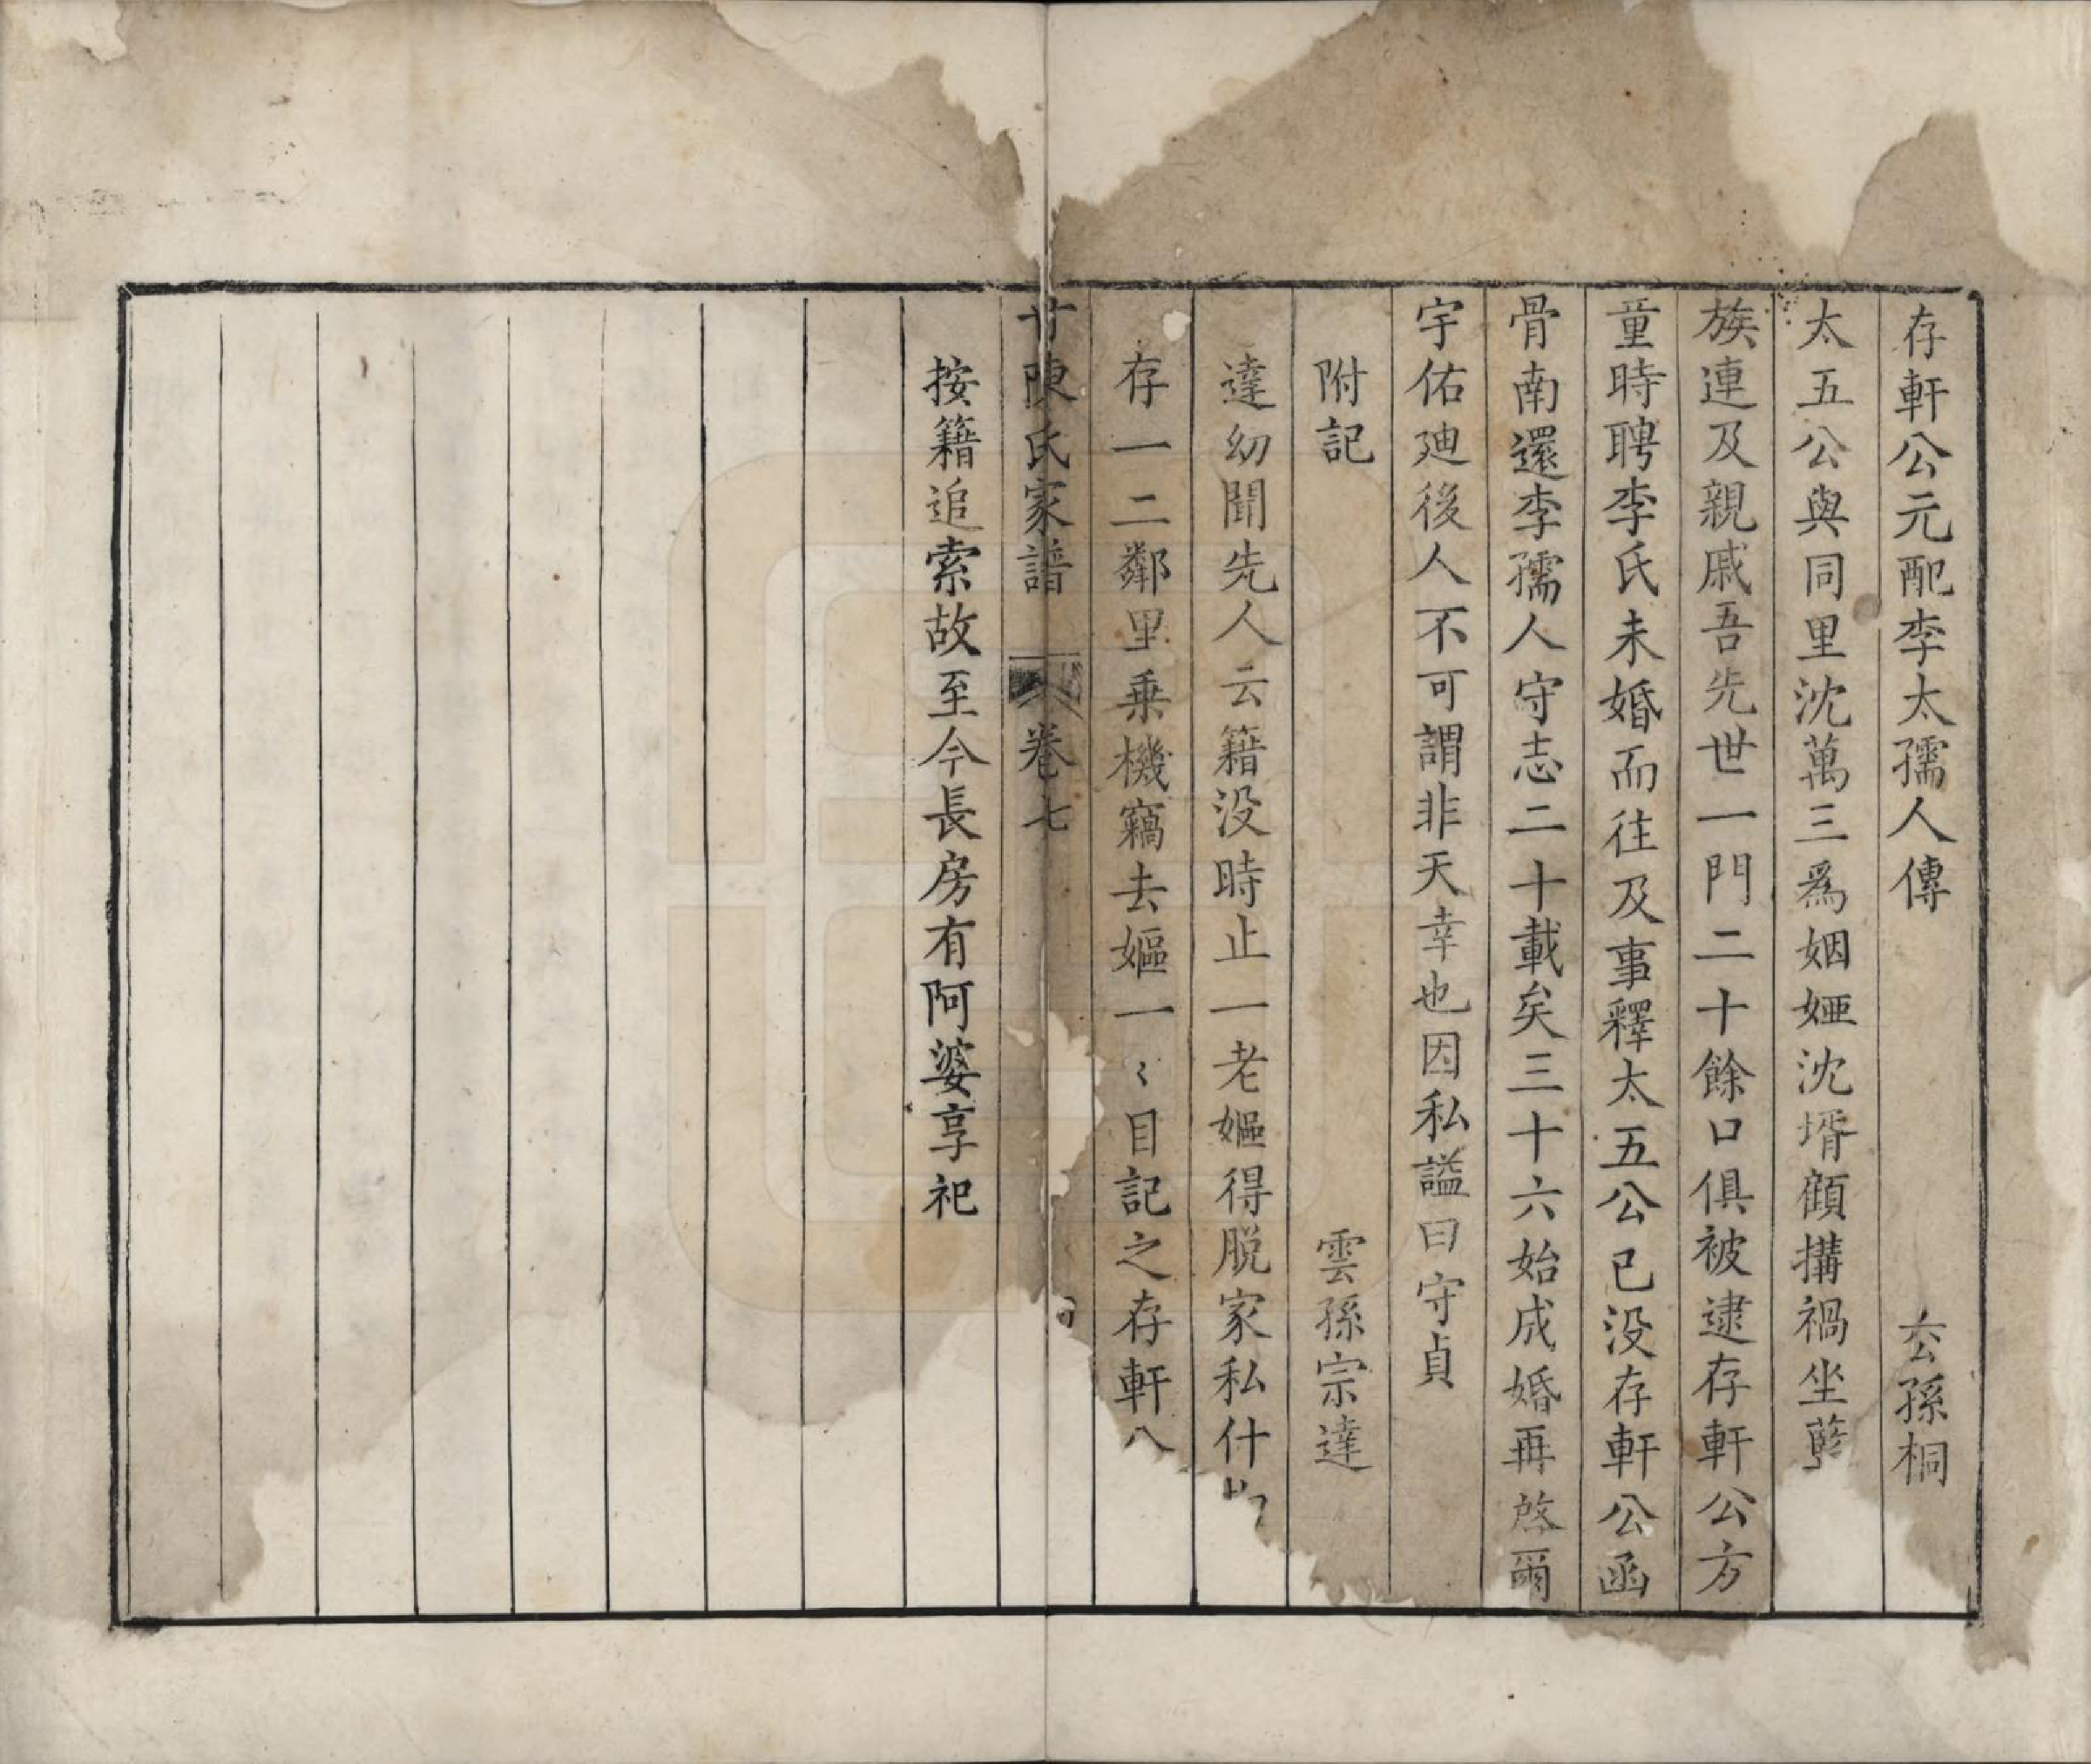 存軒公元配李太孺人傳 玄孫桐
太五公與同里沈萬三為姻婭沈壻顧搆禍坐藍
族連及親戚吾先世一門二十餘口俱被逮存軒公方
童時聘李氏未婚而往及事釋太五公已没存軒公函
骨南還李孺人守志二十載矣三十六始成婚再啓爾
宇佑廸後人不可謂非天幸也因私謚曰守貞
附記 雲孫宗達
達幼聞先人云籍没時止一老嫗得脱家私什物
存一二鄰里乗機竊去嫗一〻目記之存軒公
陳氏家譜 卷七
按籍追索故至今長房有阿婆享祀